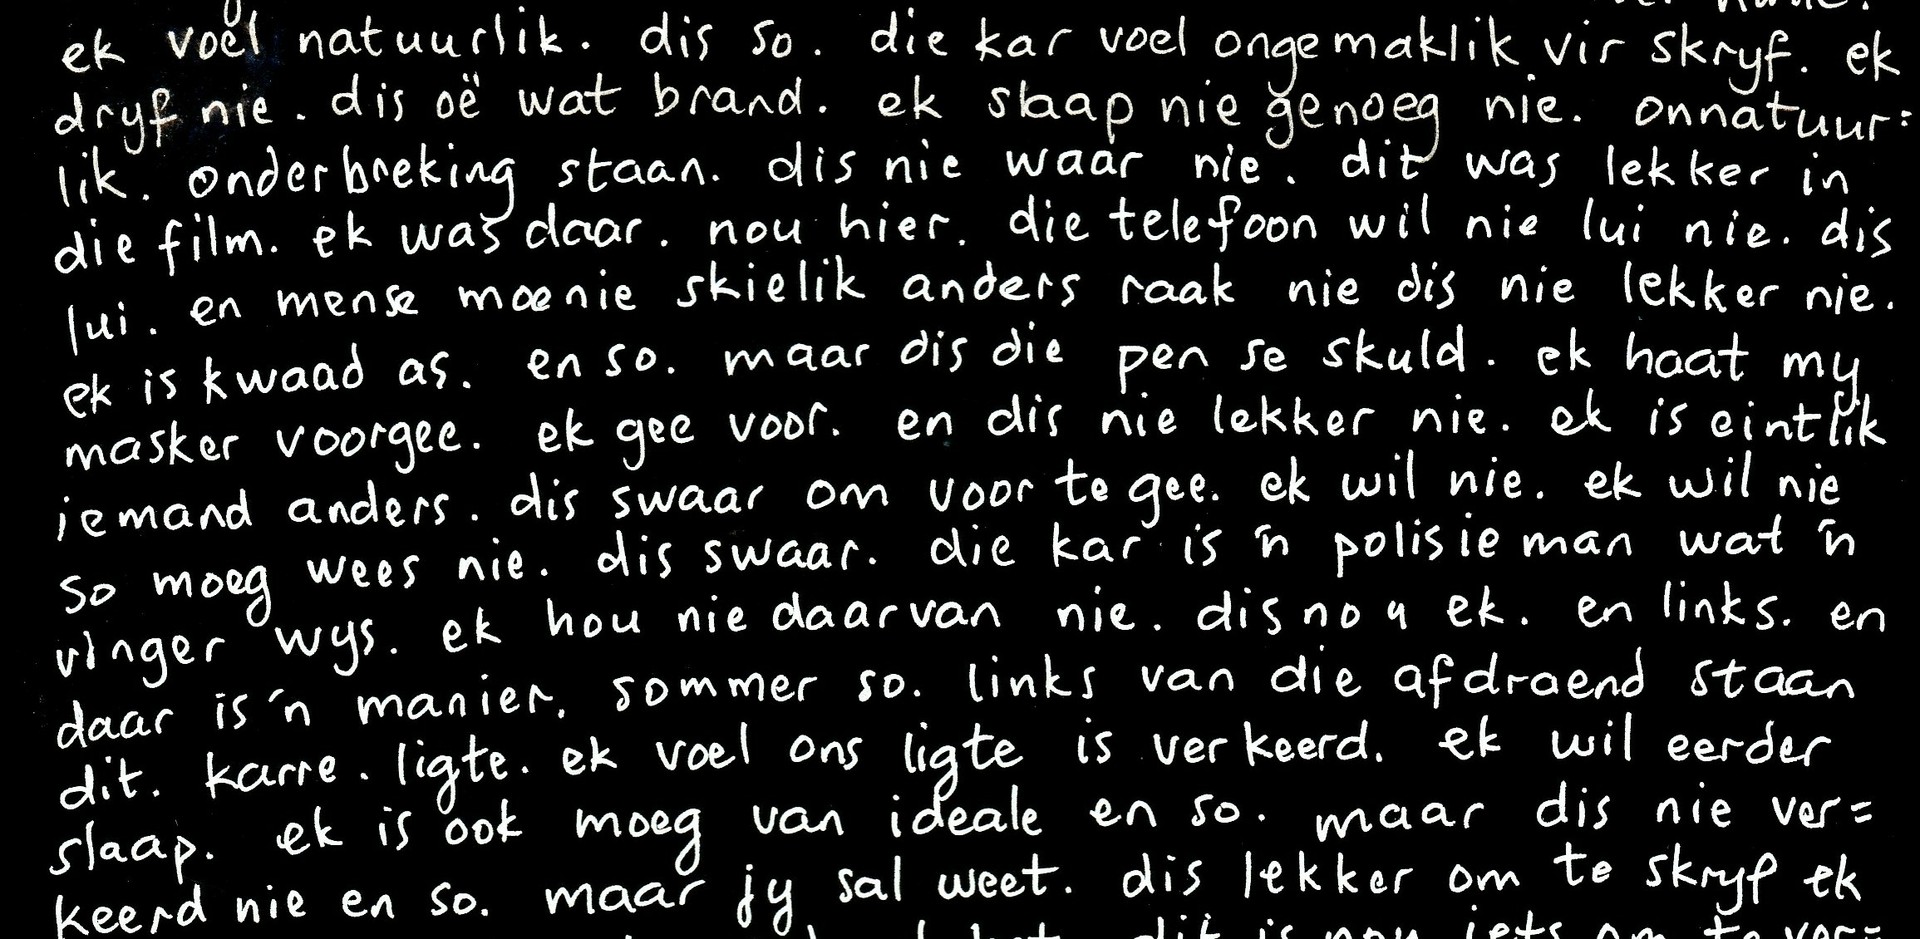 ek voel natuurlik. dis so. die kar voel ongemaklik vir skryf. ek
dryf nie. dis oë wat brand. ek slaap nie genoeg nie. onnatuur=
lik. onderbreking staan. dis nie waar nie. dit was lekker in
die film. ek was daar. nou hier. die telefoon wil nie lui nie. dis
lui. en mense moenie skielik anders raak nie dis nie lekker nie.
ek is kwaad as. en so. maar dis die pen se skuld. ek haat my
masker voorgee. ek gee voor. en dis nie lekker nie. ek is eintlik
iemand anders. dis swaar om voor te gee. ek wil nie. ek wil nie
so moeg wees nie. dis swaar. die kar is 'n polisieman wat 'n
vinger wys. ek hou nie daarvan nie. dis nou ek. en links. en
daar is 'n manier. sommer so. links van die afdraend staan
dit. karre. ligte. ek voel ons ligte is verkeerd. ek wil eerder
slaap. ek is ook moeg van ideale en so. maar dis nie ver=
keerd nie en so. maar jy sal weet. dis lekker om te skryf ek
dit is nou iets om te ver=